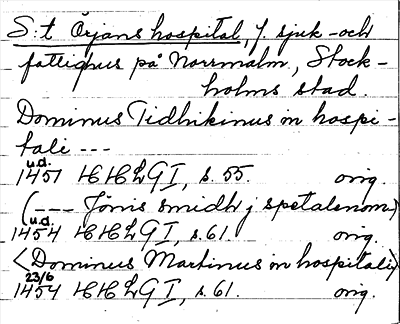 S:t Örjans hospital, f. sjuk- och
fattighus på Norrmalm, Stock-
holms stad.
Dominus Tidhikinus in hospi-
tali ---
u.d.
1451 HHLG I, s. 55. orig.
(--- Jönis smidh j spetalenom.)
u.d.
1454 HHLG I, s. 61. orig.
<Dominus Martinus in hospitali>
23/6
1454 HHLG I, s. 61. orig.